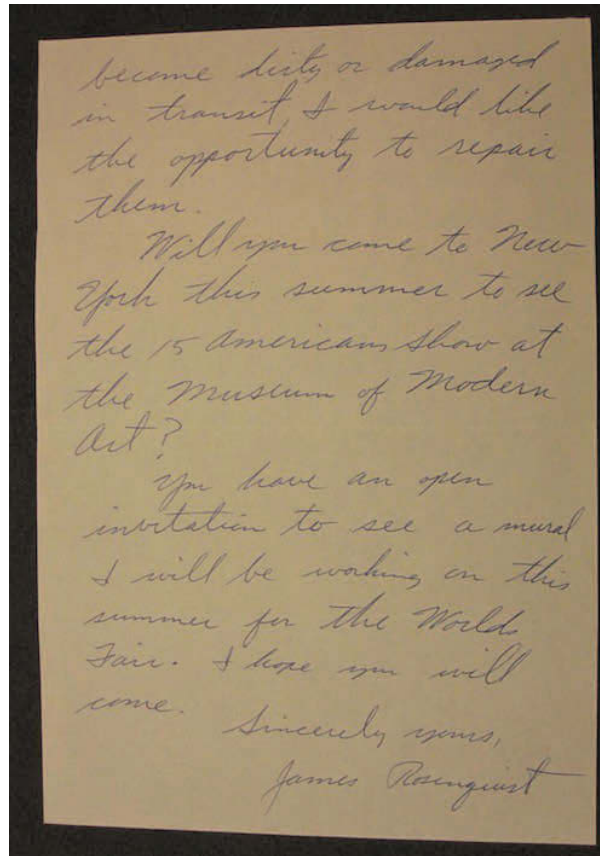 become dirty or damaged
in transit, I would like
the opportunity to repair
them.
Will you come to New
York this summer to see
the 15 Americans show at
the Museum of Modern
Art?
You have an open
invitation to see a mural
I will be working on this
summer for the Worlds
Fair. I hope you will
come.
Sincerely yours,
James Rosenquist